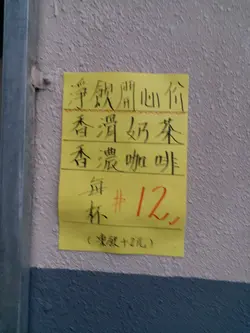 淨飲開心价
香滑奶茶
香濃咖啡
每杯 #12
(凍飲+2元)